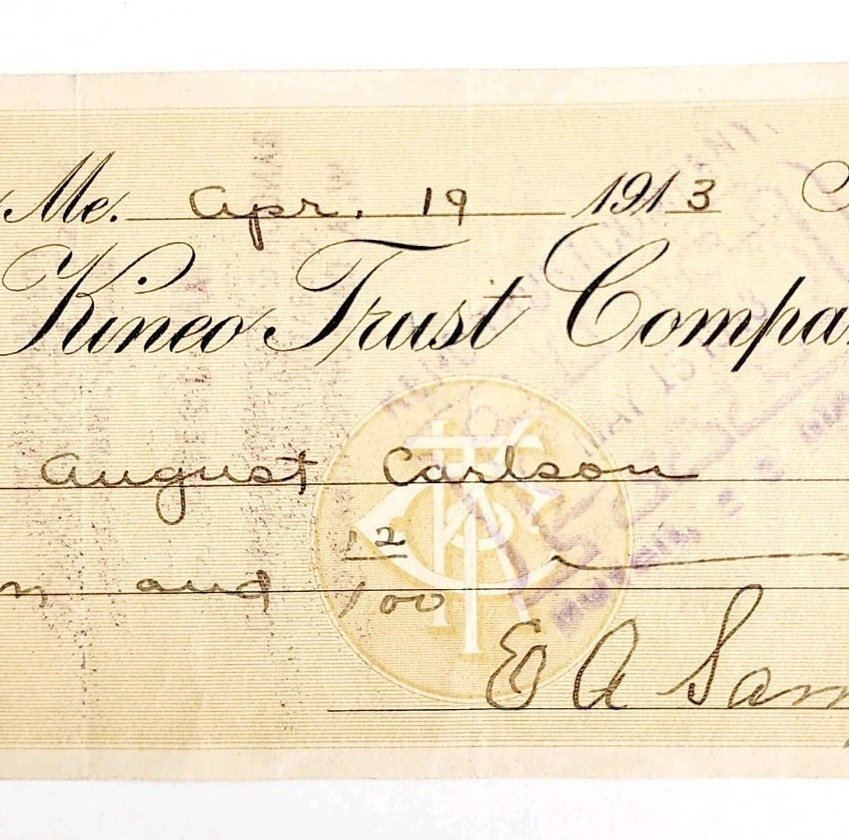 Me. Apr. 19 1913
Kineo Trust Compa
August Carlson
n and 12/100
E A Sam